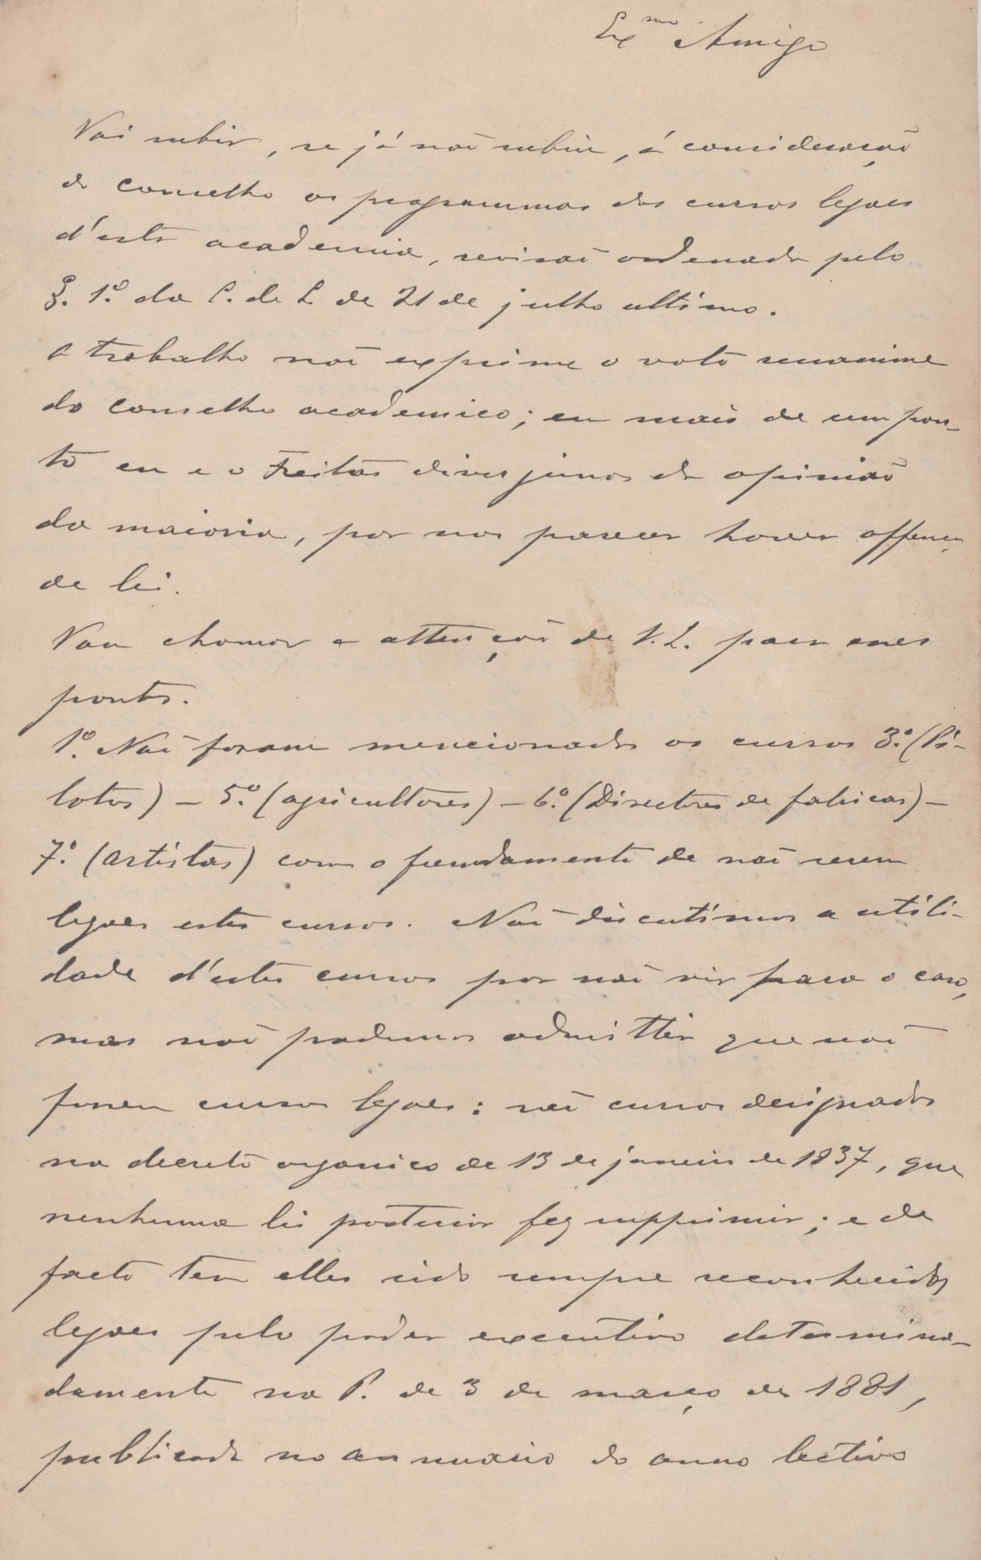 Ex.mo Amigo
Vai subir, se já não subiu, á consideração
do conselho os programmas dos cursos legaes
d'esta academia, revisão ordenada pelo
§. 1º da C. de L de 21 de julho ultimo.
O trabalho não exprime o voto unanime
do conselho academico; em mais de um pon-
to eu e o Freitas divergimos da opinião
da maioria, por nos parecer haver offensa
de lei.
Vou chamar a attenção de V. E. para esses
pontos.
1º. Não foram mencionados os cursos 3º. (Pi-
lotos) – 5º. (agricultores) – 6º. (Directores de fabricas) –
7º. (artistas) com o fundamento de não serem
legaes estes cursos. Não discutimos a utili-
dade d'estes cursos por não vir para o caso,
mas não podemos admittir que não
fossem cursos legaes: são cursos designados
no decreto organico de 13 de janeiro de 1837, que
nenhuma lei posterior fez supprimir; e de
facto tem elles sido sempre reconhecidos
legaes pelo poder executivo determina-
damente na P. de 3 de março de 1881,
publicada no annuario do anno lectivo